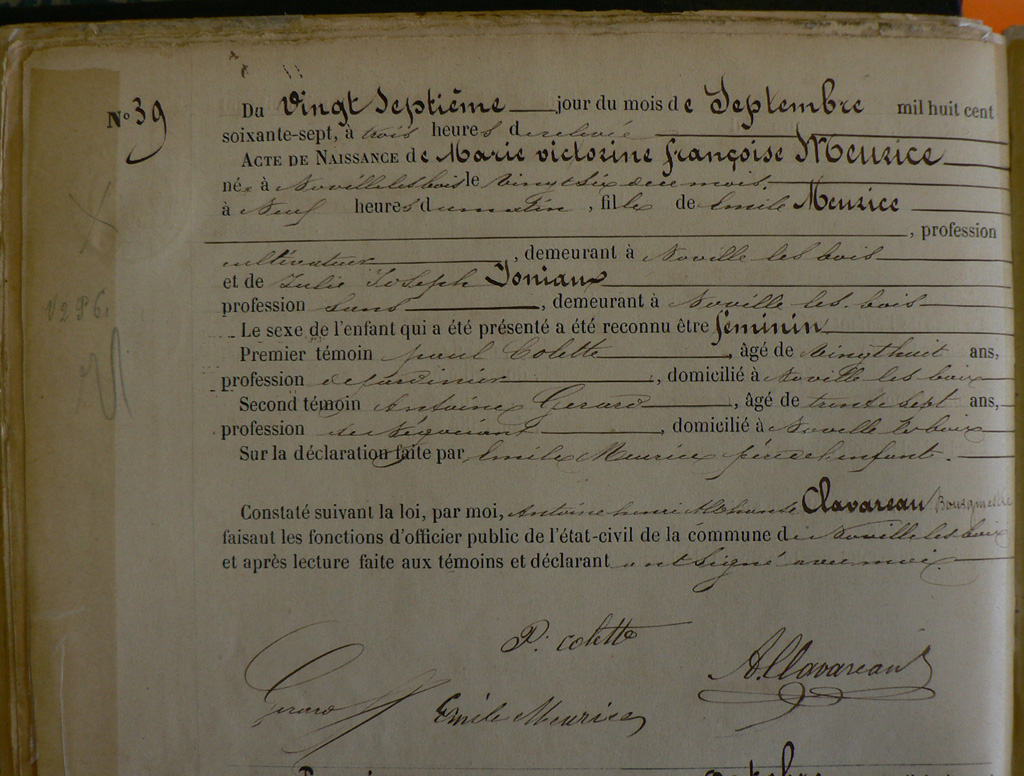 N° 39
Du Vingt Septième jour du mois de Septembre mil huit cent
soixante-sept, à trois heures de relevée
ACTE DE NAISSANCE de Marie victorine françoise Meurice
née à Noville les bois le Vingt Six de ce mois.
à Neuf heures du matin, fille de Emile Meurice
, profession
cultivateur, demeurant à Noville les bois
et de Julie Joseph Joniaux
profession Sans, demeurant à Noville les bois
Le sexe de l'enfant qui a été présenté a été reconnu être féminin
Premier témoin paul Colette, âgé de Vingt huit ans,
profession de jardinier, domicilié à Noville les bois
Second témoin Antoine Gerard, âgé de trente sept ans,
profession de Négociant, domicilié à Noville les bois
Sur la déclaration faite par Emile Meurice père de l'enfant.
Constaté suivant la loi, par moi, Antoine henri Clavareau Bourgmestre
faisant les fonctions d'officier public de l'état-civil de la commune de Noville les bois
et après lecture faite aux témoins et déclarant ont Signé avec moi.
P. Colette
A. Clavareau
Gerard
Emile Meurice
octobre